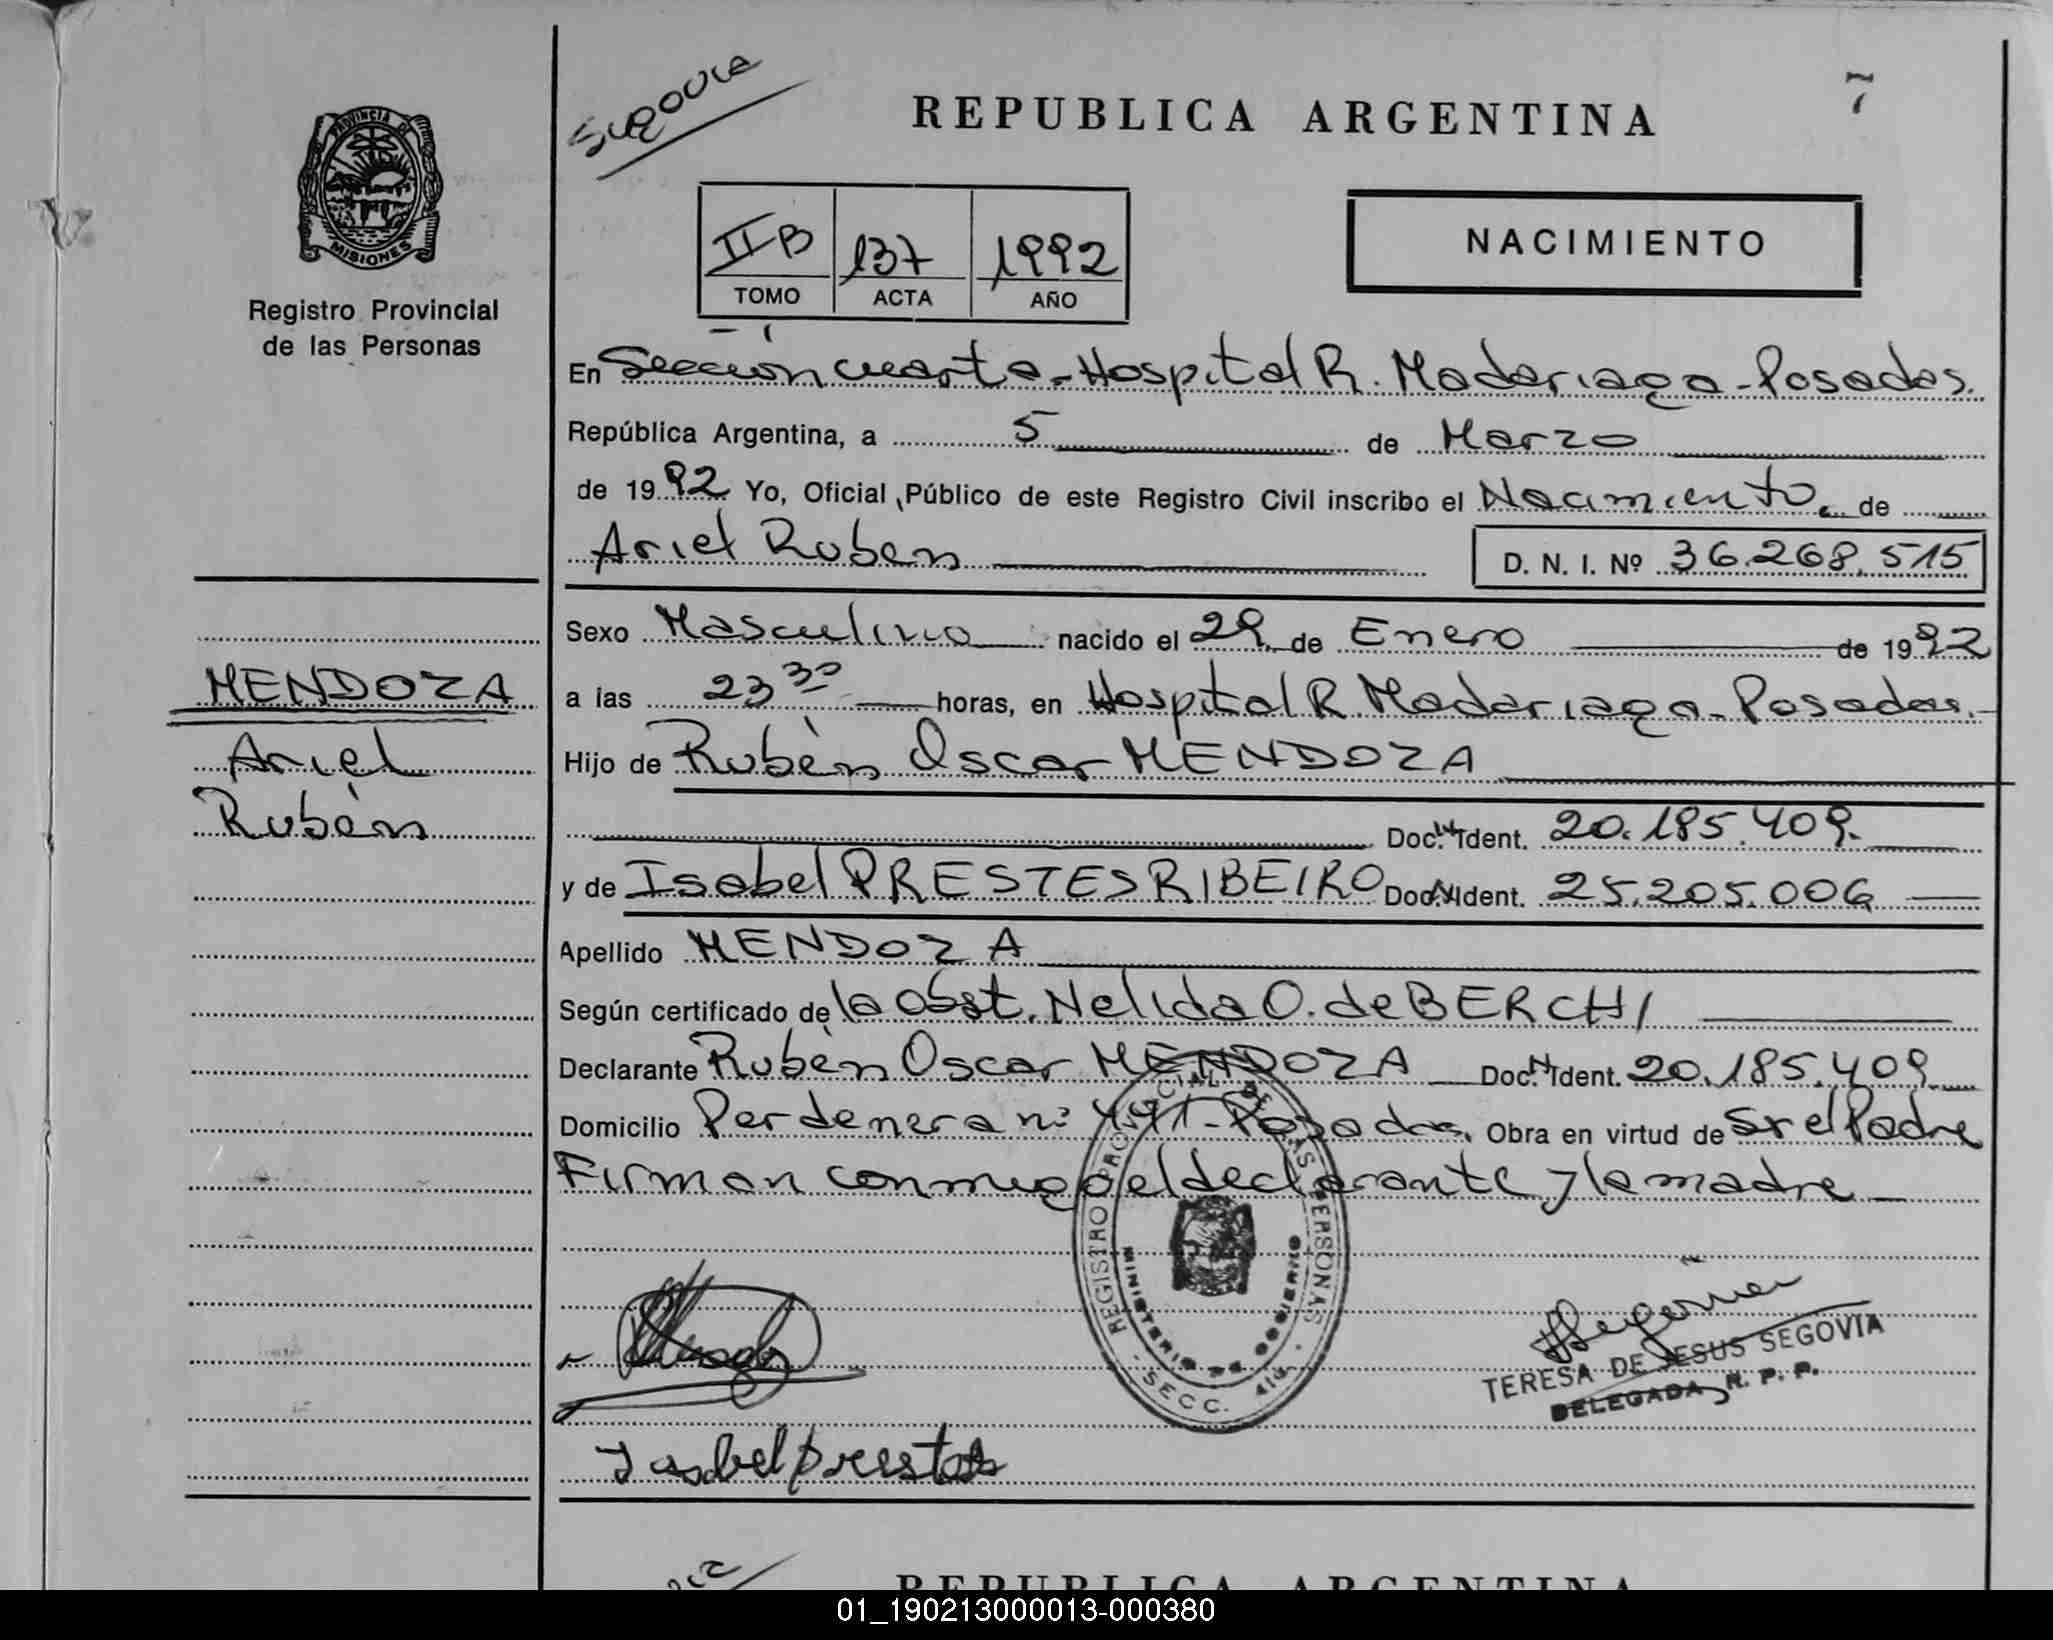 7
REPUBLICA ARGENTINA
PROVINCIA DE
MISIONES
Registro Provincial
de las Personas
II B 137 1992
TOMO ACTA AÑO
NACIMIENTO
En Sección cuarta - Hospital R. Madariaga - Posadas.
República Argentina, a 5 de Marzo
de 1992 Yo, Oficial Público de este Registro Civil inscribo el Nacimiento de
Ariel Ruben D. N. I. Nº 36.268.515
Sexo Masculino nacido el 29 de Enero de 1992
a las 23 30 horas, en Hospital R. Madariaga - Posadas.
Hijo de Rubén Oscar MENDOZA
Doc. Ident. 20.185.409.
y de Isabel PRESTES RIBEIRO Doc. Ident. 25.205.006
Apellido MENDOZA
Según certificado de la Obst. Nelida O. de BERCHI
Declarante Rubén Oscar MENDOZA Doc. Ident. 20.185.409
Domicilio Perdenera nº Posadas. Obra en virtud de Sr el Padre
Firman conmigo el declarante y la madre
MENDOZA
Ariel
Rubén
REGISTRO PROVINCIAL DE LAS PERSONAS
MINISTERIO DE GOBIERNO
SECC. 4ta.
TERESA DE JESUS SEGOVIA
DELEGADA R. P. P.
Isabel prestes
REPUBLICA ARGENTINA
01_190213000013-000380